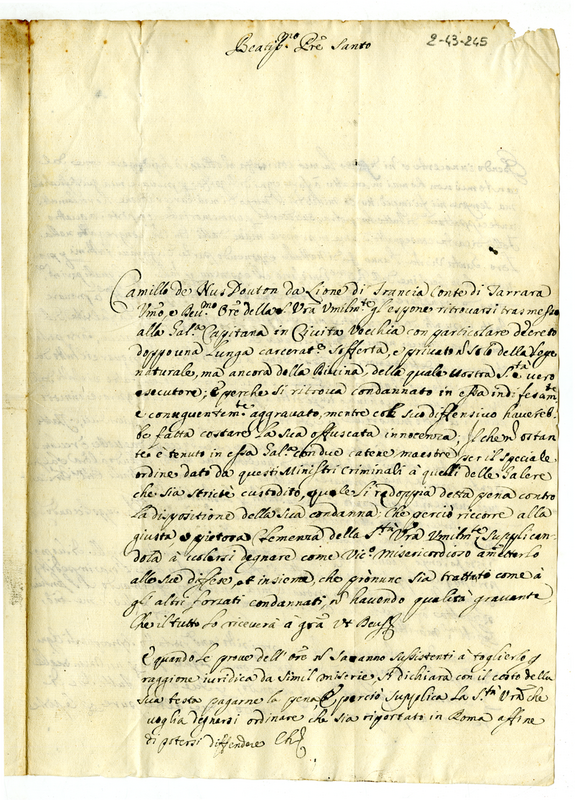 2-43-245
Beatiss.mo Pre Santo
Camillo de Nus Douton da Lione di Francia Conte di Tarrara
Umo, e Deu.mo Ore della S. Vra Umilm.te gl'espone ritrovarsi trasmesso
alla Gal.a Capitana in Civita Vecchia con particolare decreto
doppo una lunga carcerat.e sofferta, e privato n solo della legge
naturale, ma ancord della Divina, della quale Vostra S.tà vero
esecutore; E perche si ritrova condannato in essa indifesam.te
e conseguentem.te aggravato, mentre col suo diffensivo havereb-
be fatta costare la sua offuscata innocenza; Il che n ostan
te è tenuto in essa Gal.a con due catene maestre per il speciale
ordine dato da questi Ministri Criminali à quelli delle Galere
che sia stricte custodito, quale si redoppia detta pena contro
la dispositione della sua condanna. Che perciò ricorre alla
giusta e pietosa Clemenza della S.tà Vra Umilm.te Supplican-
dola à volersi degnare come Vic.o Misericordioso amitterlo
alle sue difese, et insieme, che pronunc sia trattato come à
gl'altri forzati condannati, n havendo qualità gravante
Che il tutto lo riceverà a gra Ut Deus
E quando le prove dell'Ore n saranno sussistenti à toglierlo p
raggione iuridica da simil miserie, si dichiara con il costo della
sua testa pagarne la pena, E perciò supplica la S.tà Vra che
voglia degnarsi ordinare che sia riportato in Roma affine
di potersi diffendere Che